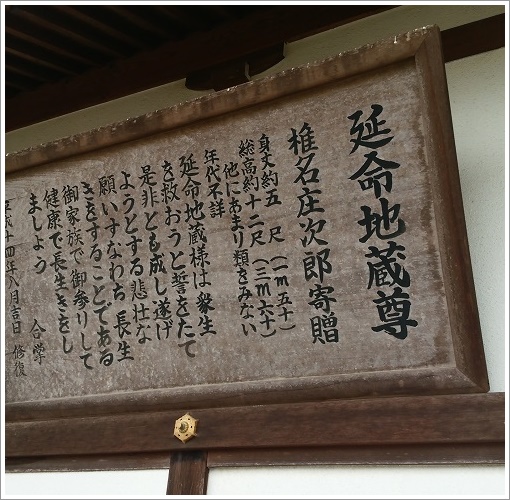 延命地蔵尊
椎名庄次郎寄贈
身丈約五尺(一m五十)
総高約十二尺(三m六十)
他にあまり類をみない
年代不詳
延命地蔵様は衆生
を救おうと誓をたて
是非とも成し遂げ
ようとする悲壮な
願いすなわち長生
きをすることである
御家族で御参りして
健康で長生きをし
ましょう 合掌
平成十四年八月吉日 修復